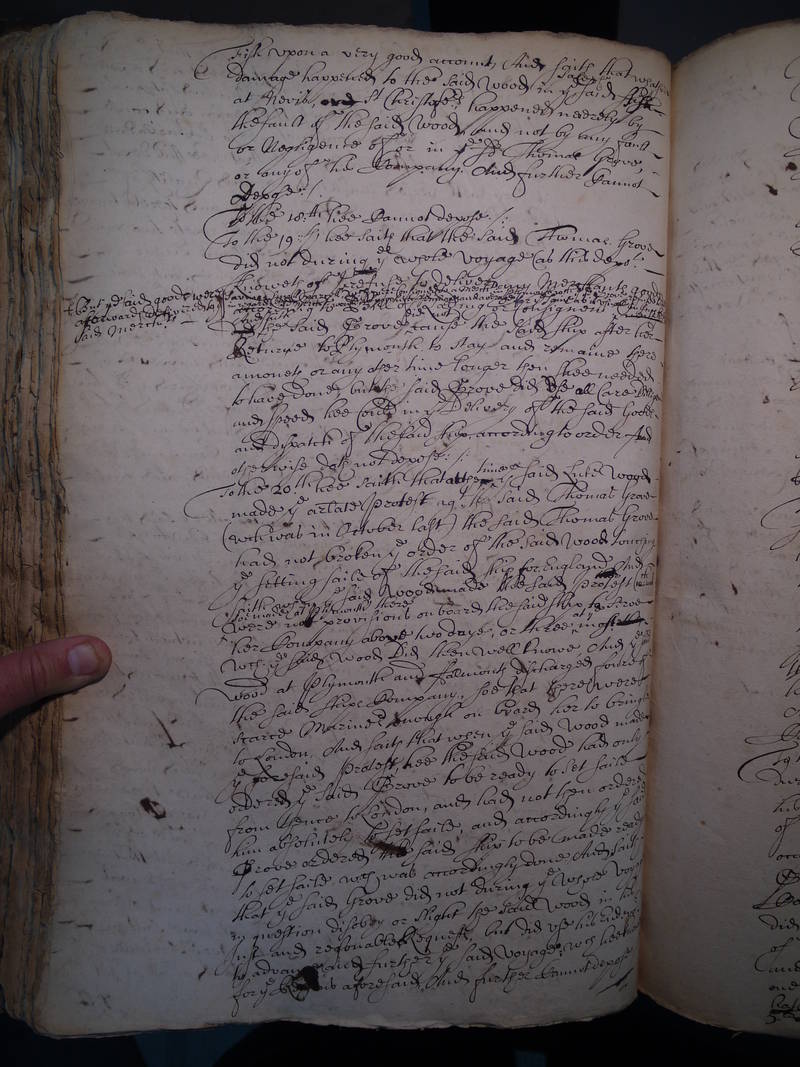 Fish upon a very good account, And saith that what
damage happened to the said Wood in ye said Fish
at Nevis, and St Christofers happened meerely by
the fault of the said Wood, and not by any fault
or Negligence of or in ye sd Thomas Grove,
or any of his Company. And further Cannot
Depose /:
To the 18th hee Cannot depose /:
To the 19th hee saith that the said Thomas Grove
did not during ye whole voyage (as this depot
knoweth of) refuse to deliver any Merchants goods
+ but ye said goods were
afterward delivered to ye
said Merchts
the said Grove cause the said ship after her
Returne to Plymouth to stay and remaine there
a moneth or any other time longer then shee needed
to have done, but the said Grove did use all Care
and speed hee could in ye Delivery of the said Goods
and dispatch of the said ship according to order And
otherwise doth not depose /:
To the 20th hee saith that at the time ye said Luke Wood
made ye arlate Protest agt the said Thomas Grove
(wch was in October last) the said Thomas Grove
had not broken ye order of the said Wood touching
ye setting saile of the said ship for England And
saith ye said Wood made the said Protest
at Plymouth there
were not provisions on board the said ship to serve
her Company above two daye, or three at most
wch ye said Wood did then well knowe And ye sd
Wood at Plymouth and Falmouth discharged foure of
the said ships Company, soe that there were
scarce Marinrs enough on board her to bring
to London. And saith that when ye said Wood made
ye foresaid Protest hee the said Wood had only
ordered ye said Grove to be ready to set saile
from thence to London, and had not then ordered
him absolutely to set saile, and accordingly ye sd
Grove ordered the said ship to be made ready
to set saile wch was accordingly done And saith
that ye said Grove did not during ye whole voyage
in question disobey or slight the said Wood in his
Just and reasonable Requests, but did use his
to advance and further ye said voyage, wch hee
for ye aforesaid, And further Cannot depose